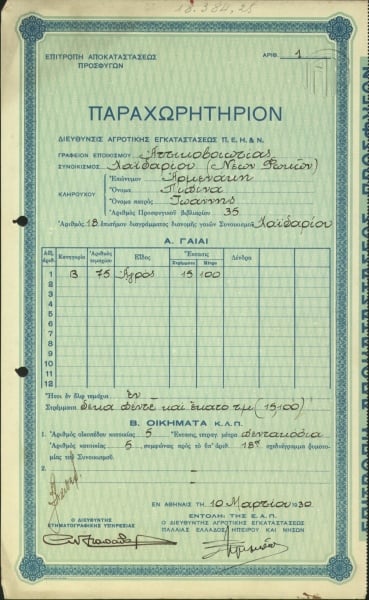 18.384,25
ΕΠΙΤΡΟΠΗ ΑΠΟΚΑΤΑΣΤΑΣΕΩΣ
ΠΡΟΣΦΥΓΩΝ
ΑΡΙΘ. 1
ΠΑΡΑΧΩΡΗΤΗΡΙΟΝ
ΔΙΕΥΘΥΝΣΙΣ ΑΓΡΟΤΙΚΗΣ ΕΓΚΑΤΑΣΤΑΣΕΩΣ Π. Ε. Η. & Ν.
ΓΡΑΦΕΙΟΝ ΕΠΟΙΚΙΣΜΟΥ Αττικοβοιωτίας
ΣΥΝΟΙΚΙΣΜΟΣ Χαϊδαρίου (Νέων Φωκιών)
ΚΛΗΡΟΥΧΟΥ
Ἐπώνυμον Αρμενάκη
Ὄνομα
Ὄνομα πατρὸς Ἰωάννης
Ἀριθμὸς Προσφυγικοῦ βιβλιαρίου 35
Ἀριθμὸς 18 ἐπισήμου διαγράμματος διανομῆς γαιῶν Συνοικισμοῦ Χαϊδαρίου
Α. ΓΑΙΑΙ
Αὔξ. ἀριθ. Κατηγορία Ἀριθμὸς τεμαχίου Εἶδος Ἔκτασις Στρέμματα Μέτρα Δένδρα
1 Β 75 Ἀγρὸς 15 100
2
3
4
5
6
7
8
9
10
11
12
Ἤτοι ἐν ὅλῳ τεμάχια ἓν
Στρέμματα δέκα πέντε καὶ ἑκατὸ τμ (15,100)
Β. ΟΙΚΗΜΑΤΑ Κ.Λ.Π.
1. Ἀριθμὸς οἰκοπέδου κατοικίας 5 Ἔκτασις, τετραγ. μέτρα Πεντακόσια
Ἀριθμὸς κατοικίας 5, συμφώνως πρὸς τὸ ὑπ' ἀριθ. 18ον σχεδιάγραμμα ρυμοτομίας τοῦ Συνοικισμοῦ.
2.
ΕΝ ΑΘΗΝΑΙΣ ΤΗι 10 Μαρτίου 1930
ΕΝΤΟΛΗι ΤΗΣ Ε.Α.Π.
Ο ΔΙΕΥΘΥΝΤΗΣ
ΚΤΗΜΑΤΟΓΡΑΦΙΚΗΣ ΥΠΗΡΕΣΙΑΣ
Ο ΔΙΕΥΘΥΝΤΗΣ ΑΓΡΟΤΙΚΗΣ ΕΓΚΑΤΑΣΤΑΣΕΩΣ
ΠΑΛΑΙΑΣ ΕΛΛΑΔΟΣ ΗΠΕΙΡΟΥ ΚΑΙ ΝΗΣΩΝ